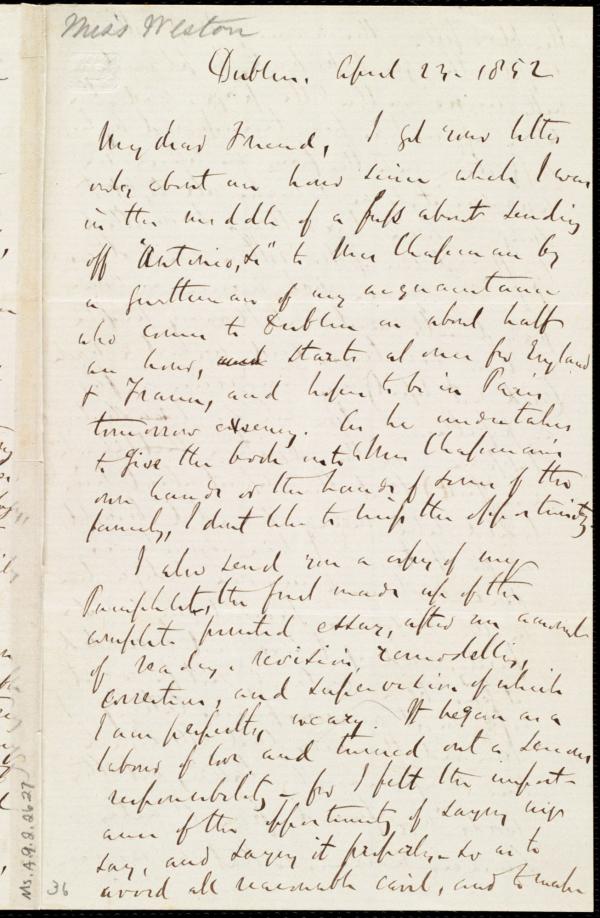 Miss Weston
Dublin. April 23. 1852
My dear Friend, I got your letter
only about an hour since when I was
in the middle of a fuss about sending
off "Antonio, &c" to Mrs Chapman by
a gentleman of my acquaintance
who comes to Dublin in about half
an hour, and starts at once for England
& France, and hopes to be in Paris
tomorrow evening. As he undertakes
to give the book into Mrs Chapman's
own hands or the hands of some of the
family, I dont like to miss the opportunity.
I also send you a copy of my
Pamphlet, the first made up of the
complete printed essay, after an amount
of reading, revision, remodelling,
correction, and supervision of which
I am perfectly weary. It began as a
labour of love and turned out a serious
responsibility - for I felt the import-
ance of the opportunity of saying my
say, and saying it properly - so as to
avoid all reasonable cavil, and to make
Ms.A.9.2.26.27
36